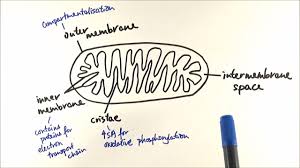 compartmentalisation
outer
membrane
inner
membrane
contains
proteins for
electron
transport
chain
cristae
↑SA for
oxidative phosphorylation
intermembrane
space